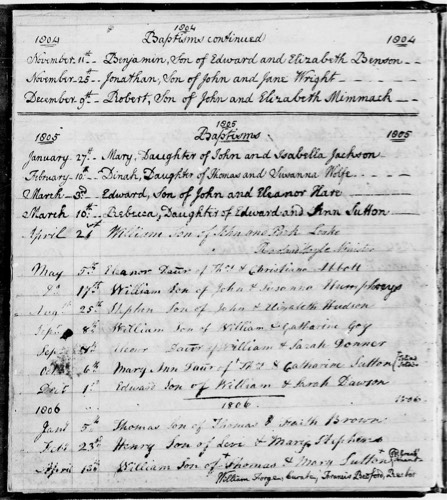 1804
1804 Baptisms continued 1804
November 11th -- Benjamin, Son of Edward and Elizabeth Benson
November 25th - Jonathan, Son of John and Jane Wright
December 9th - Robert, Son of John and Elizabeth Mimmack
1805
1805 Baptisms 1805
January 27th - Mary, Daughter of John and Isabella Jackson
February 10th - Dinah, Daughter of Thomas and Susanna Wolfe
March 3d - Edward, Son of John and Eleanor Hare
March 10th - Rebecca, Daughter of Edward and Ann Sutton
April 21st William Son of John and
May 5th Eleanor Daur of Thos & Christiana Abbott
17th William Son of John & Susanna Humphreys
Augt 25th Stephen Son of John & Elizabeth Hudson
Sept 8th William Son of William & Catharine Goy
Sept Daur of William & Sarah Donner
Octr 6th Mary Ann Daur of Thos & Catharine Sutton
Decr 1st Edward Son of William & Sarah Dawson
1806 1806 1806
Jany 5th Thomas Son of Thomas & Faith Brown
Feby 23d Henry Son of Levi & Mary Stephens
April William Son of Thomas & Mary Sutton
William Curate, Francis